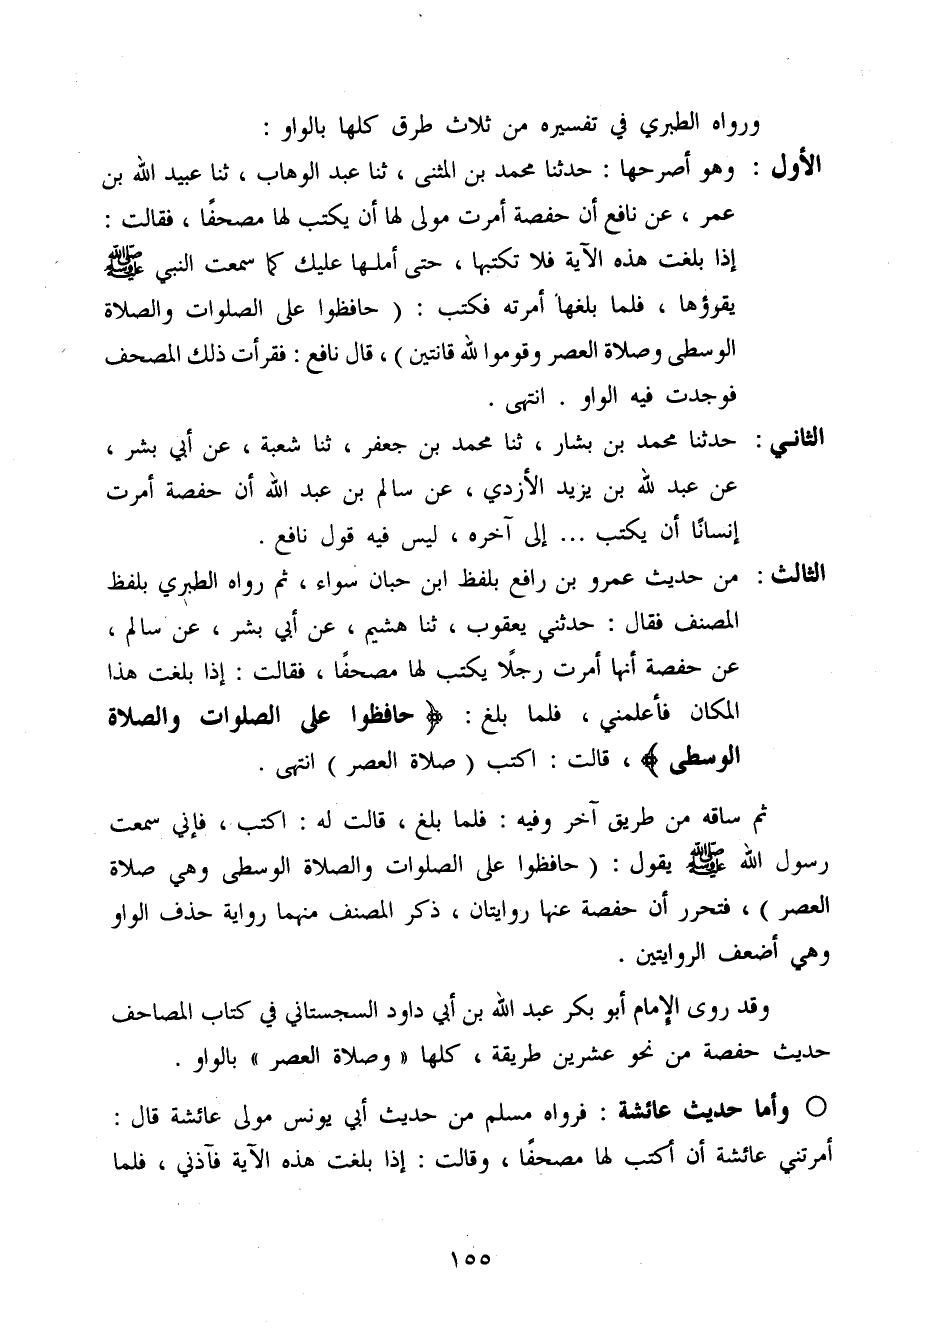 ورواه الطبري في تفسيره من ثلاث طرق كلها بالواو :
الأول : وهو أصرحها : حدثنا محمد بن المثنى ، ثنا عبد الوهاب ، ثنا عبيد الله بن
عمر ، عن نافع أن حفصة أمرت مولى لها أن يكتب لها مصحفًا ، فقالت :
إذا بلغت هذه الآية فلا تكتبها ، حتى أملها عليك كما سمعت النبي ﷺ
يقرؤها ، فلما بلغها أمرته فكتب : ( حافظوا على الصلوات والصلاة
الوسطى وصلاة العصر وقوموا لله قانتين ) ، قال نافع : فقرأت ذلك المصحف
فوجدت فيه الواو . انتهى .
الثاني : حدثنا محمد بن بشار ، ثنا محمد بن جعفر ، ثنا شعبة ، عن أبي بشر ،
عن عبد لله بن يزيد الأزدي ، عن سالم بن عبد الله أن حفصة أمرت
إنسانًا أن يكتب ... إلى آخره ، ليس فيه قول نافع .
الثالث : من حديث عمرو بن رافع بلفظ ابن حبان سواء ، ثم رواه الطبري بلفظ
المصنف فقال : حدثني يعقوب ، ثنا هشيم ، عن أبي بشر ، عن سالم ،
عن حفصة أنها أمرت رجلًا يكتب لها مصحفًا ، فقالت : إذا بلغت هذا
المكان فأعلمني ، فلما بلغ : ﴿ حافظوا على الصلوات والصلاة
الوسطى ﴾ ، قالت : اكتب ( صلاة العصر ) انتهى .
ثم ساقه من طريق آخر وفيه : فلما بلغ ، قالت له : اكتب ، فإني سمعت
رسول الله ﷺ يقول : ( حافظوا على الصلوات والصلاة الوسطى وهي صلاة
العصر ) ، فتحرر أن حفصة عنها روايتان ، ذكر المصنف منهما رواية حذف الواو
وهي أضعف الروايتين .
وقد روى الإمام أبو بكر عبد الله بن أبي داود السجستاني في كتاب المصاحف
حديث حفصة من نحو عشرين طريقة ، كلها « وصلاة العصر » بالواو .
○ وأما حديث عائشة : فرواه مسلم من حديث أبي يونس مولى عائشة قال :
أمرتني عائشة أن أكتب لها مصحفًا ، وقالت : إذا بلغت هذه الآية فآذني ، فلما
١٥٥